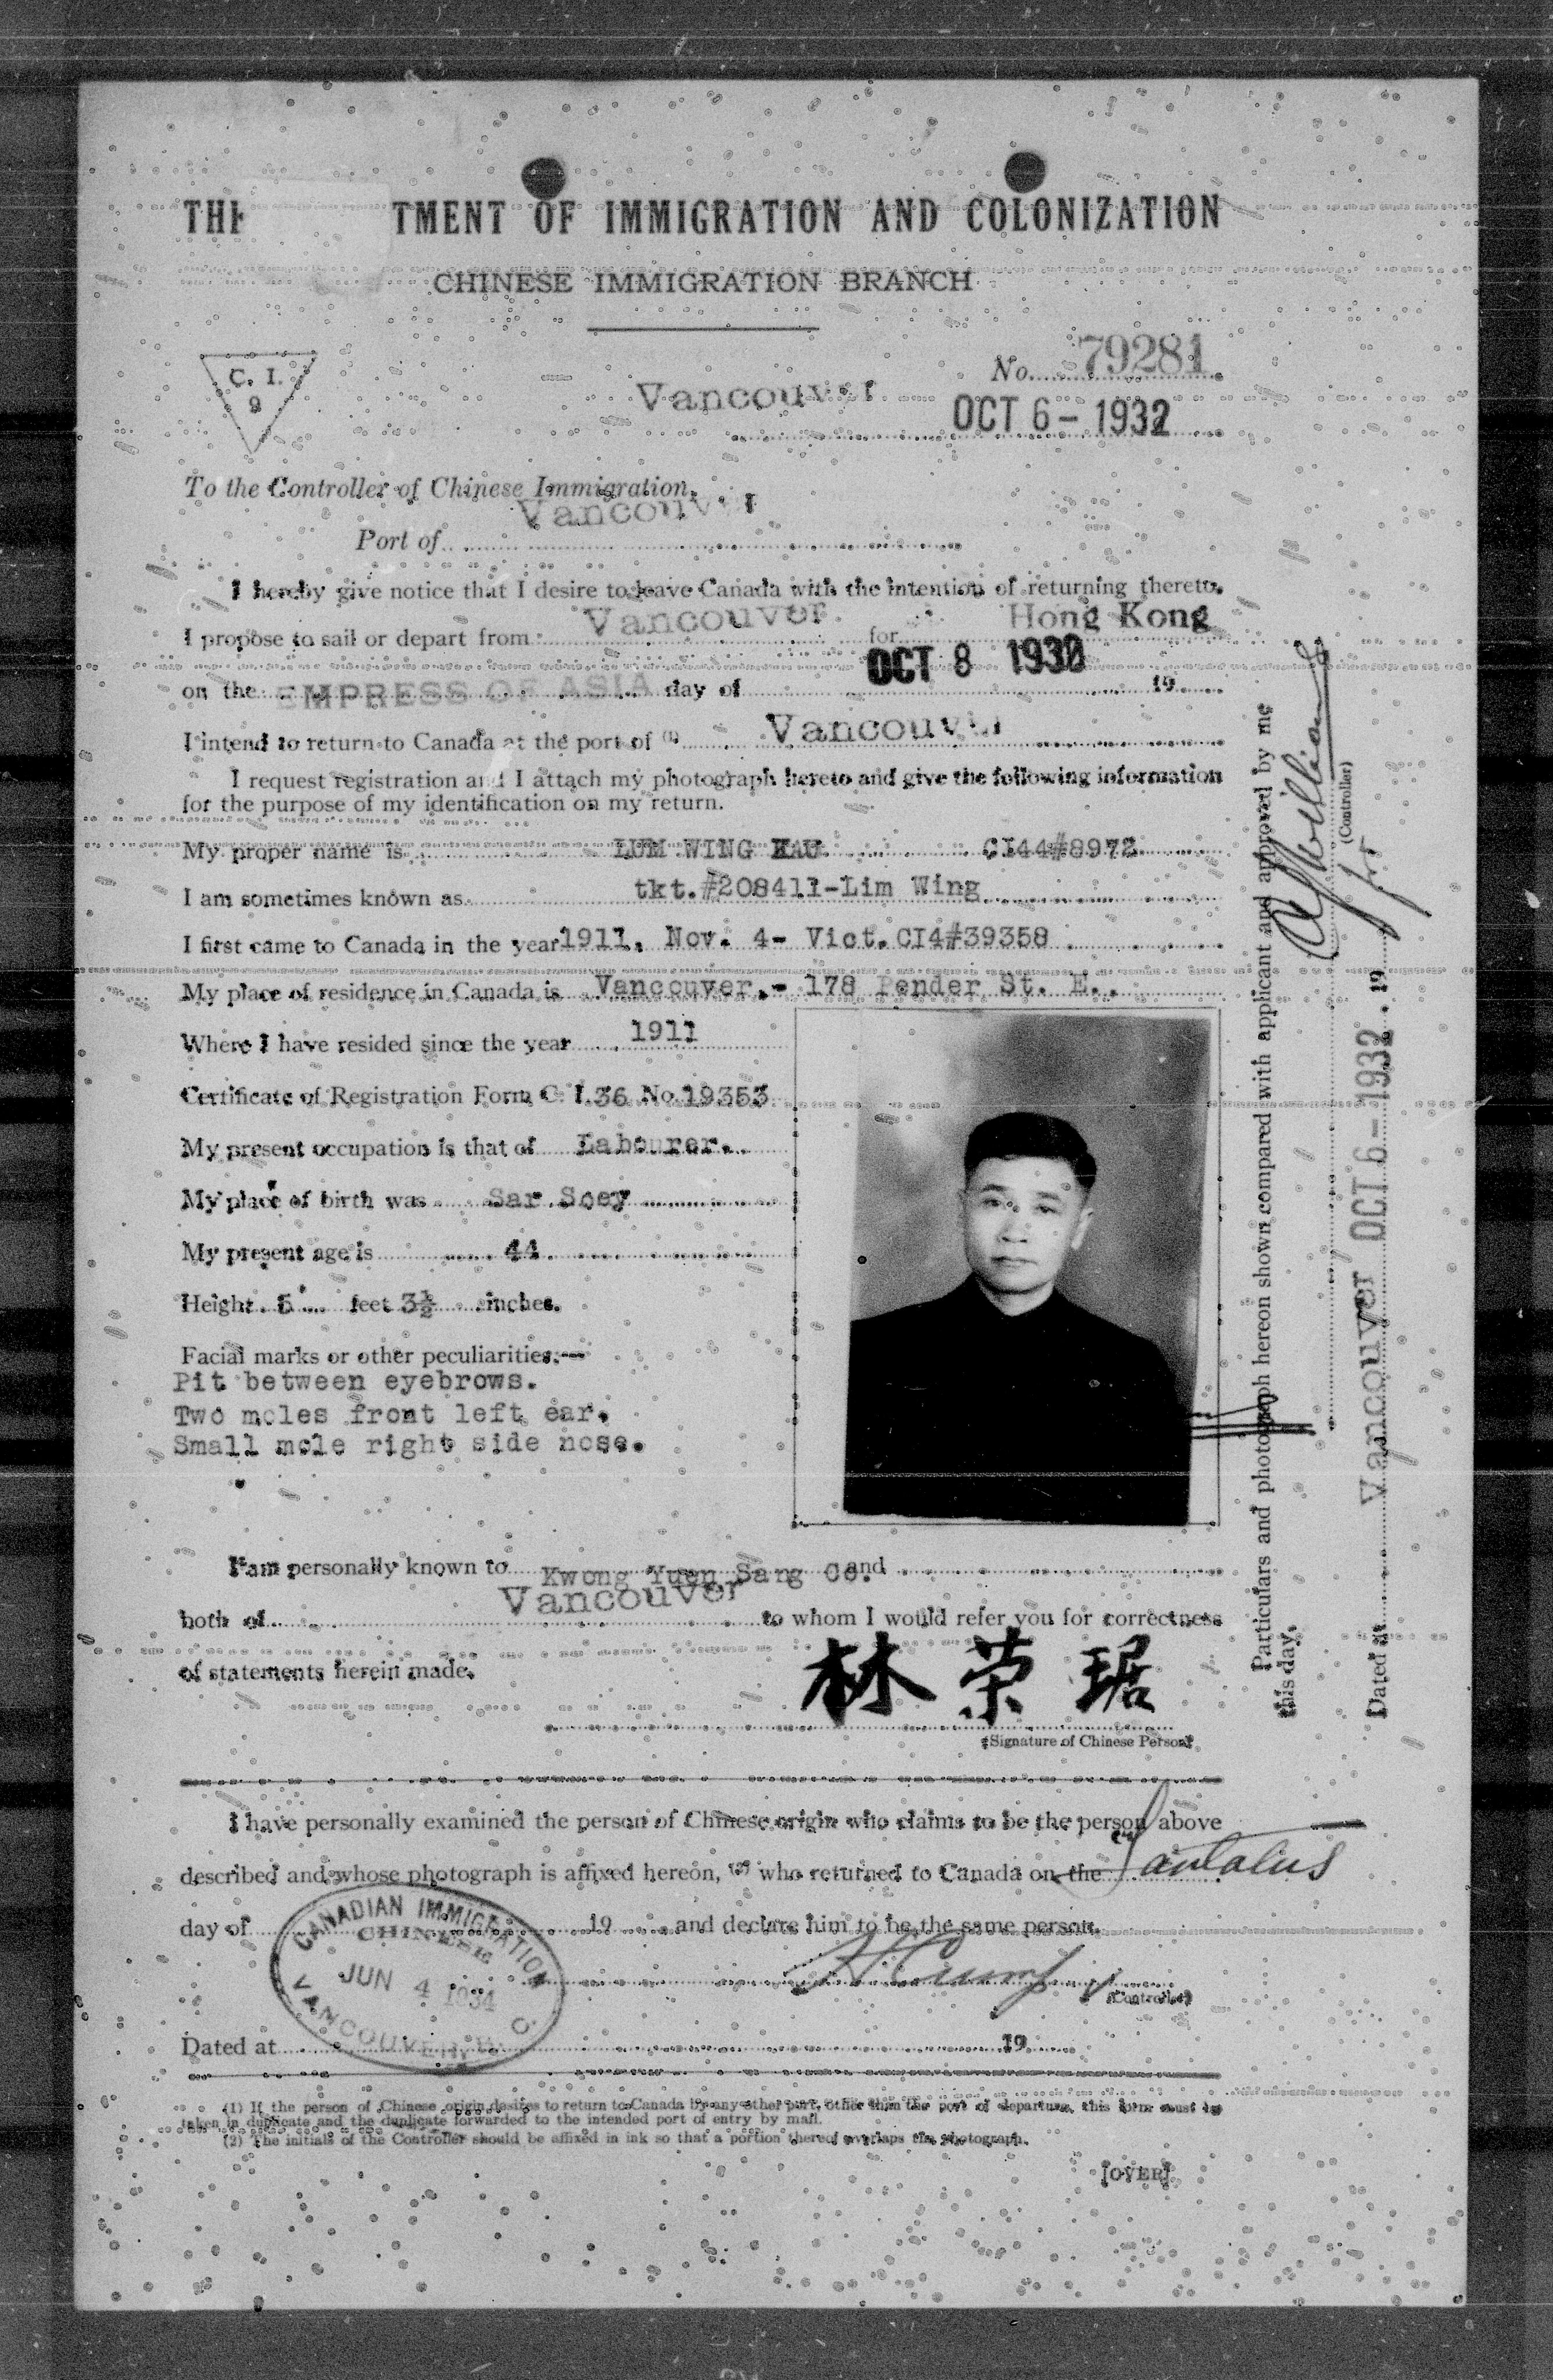 THE TMENT OF IMMIGRATION AND COLONIZATION
CHINESE IMMIGRATION BRANCH
C. I.
9
No. 79281
Vancouver
OCT 6 - 1932
To the Controller of Chinese Immigration,
Vancouver
Port of
I hereby give notice that I desire to leave Canada with the intention of returning thereto.
I propose to sail or depart from Vancouver for Hong Kong
on the EMPRESS OF ASIA day of OCT 8 1930 19
I intend to return to Canada at the port of (1) Vancouver
I request registration and I attach my photograph hereto and give the following information
for the purpose of my identification on my return.
My proper name is LUM WING KAU CI44#8972
I am sometimes known as tkt.#208411-Lim Wing
I first came to Canada in the year 1911, Nov. 4- Vict. CI4#39358
My place of residence in Canada is Vancouver,- 178 Pender St. E.
Where I have resided since the year 1911
Certificate of Registration Form C. I. 36 No. 19353
My present occupation is that of Labourer.
My place of birth was Sar Soey
My present age is 44
Height 5 feet 3½ inches.
Facial marks or other peculiarities:—
Pit between eyebrows.
Two moles front left ear.
Small mole right side nose.
I am personally known to Kwong Yuen Sang Co. and
both of Vancouver to whom I would refer you for correctness
of statements herein made.
林荣琚
(Signature of Chinese Person)
I have personally examined the person of Chinese origin who claims to be the person above
described and whose photograph is affixed hereon, (2) who returned to Canada on the Tantalus
day of 19 and declare him to be the same person.
(Controller)
CANADIAN IMMIGRATION
CHINESE
JUN 4 1934
VANCOUVER, B. C.
Dated at 19
(1) If the person of Chinese origin desires to return to Canada by any other port, other than the port of departure, this form must be
taken in duplicate and the duplicate forwarded to the intended port of entry by mail.
(2) The initials of the Controller should be affixed in ink so that a portion thereof overlaps the photograph.
[OVER]
Particulars and photograph hereon shown compared with applicant and approved by me
this day.
(Controller)
Dated at Vancouver OCT 6 - 1932 19